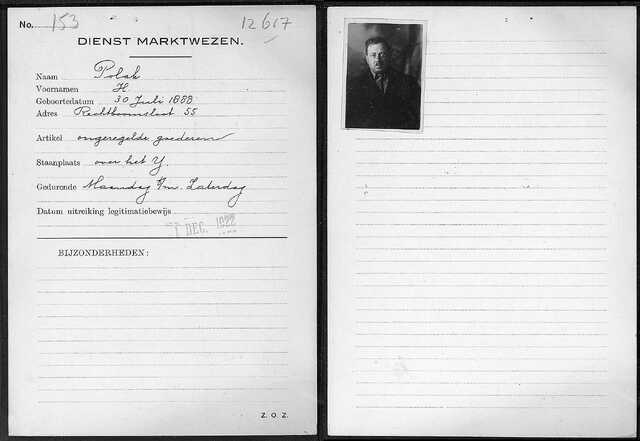 No. 153 12617
DIENST MARKTWEZEN.
Naam Polak
Voornamen H
Geboortedatum 30 Juli 1888
Adres Rechtboomsloot 55
Artikel ongeregelde goederen
Staanplaats over het Y.
Gedurende Maandag t/m. Zaterdag
Datum uitreiking legitimatiebewijs
1 DEC. 1922
BIJZONDERHEDEN:
Z. O. Z.